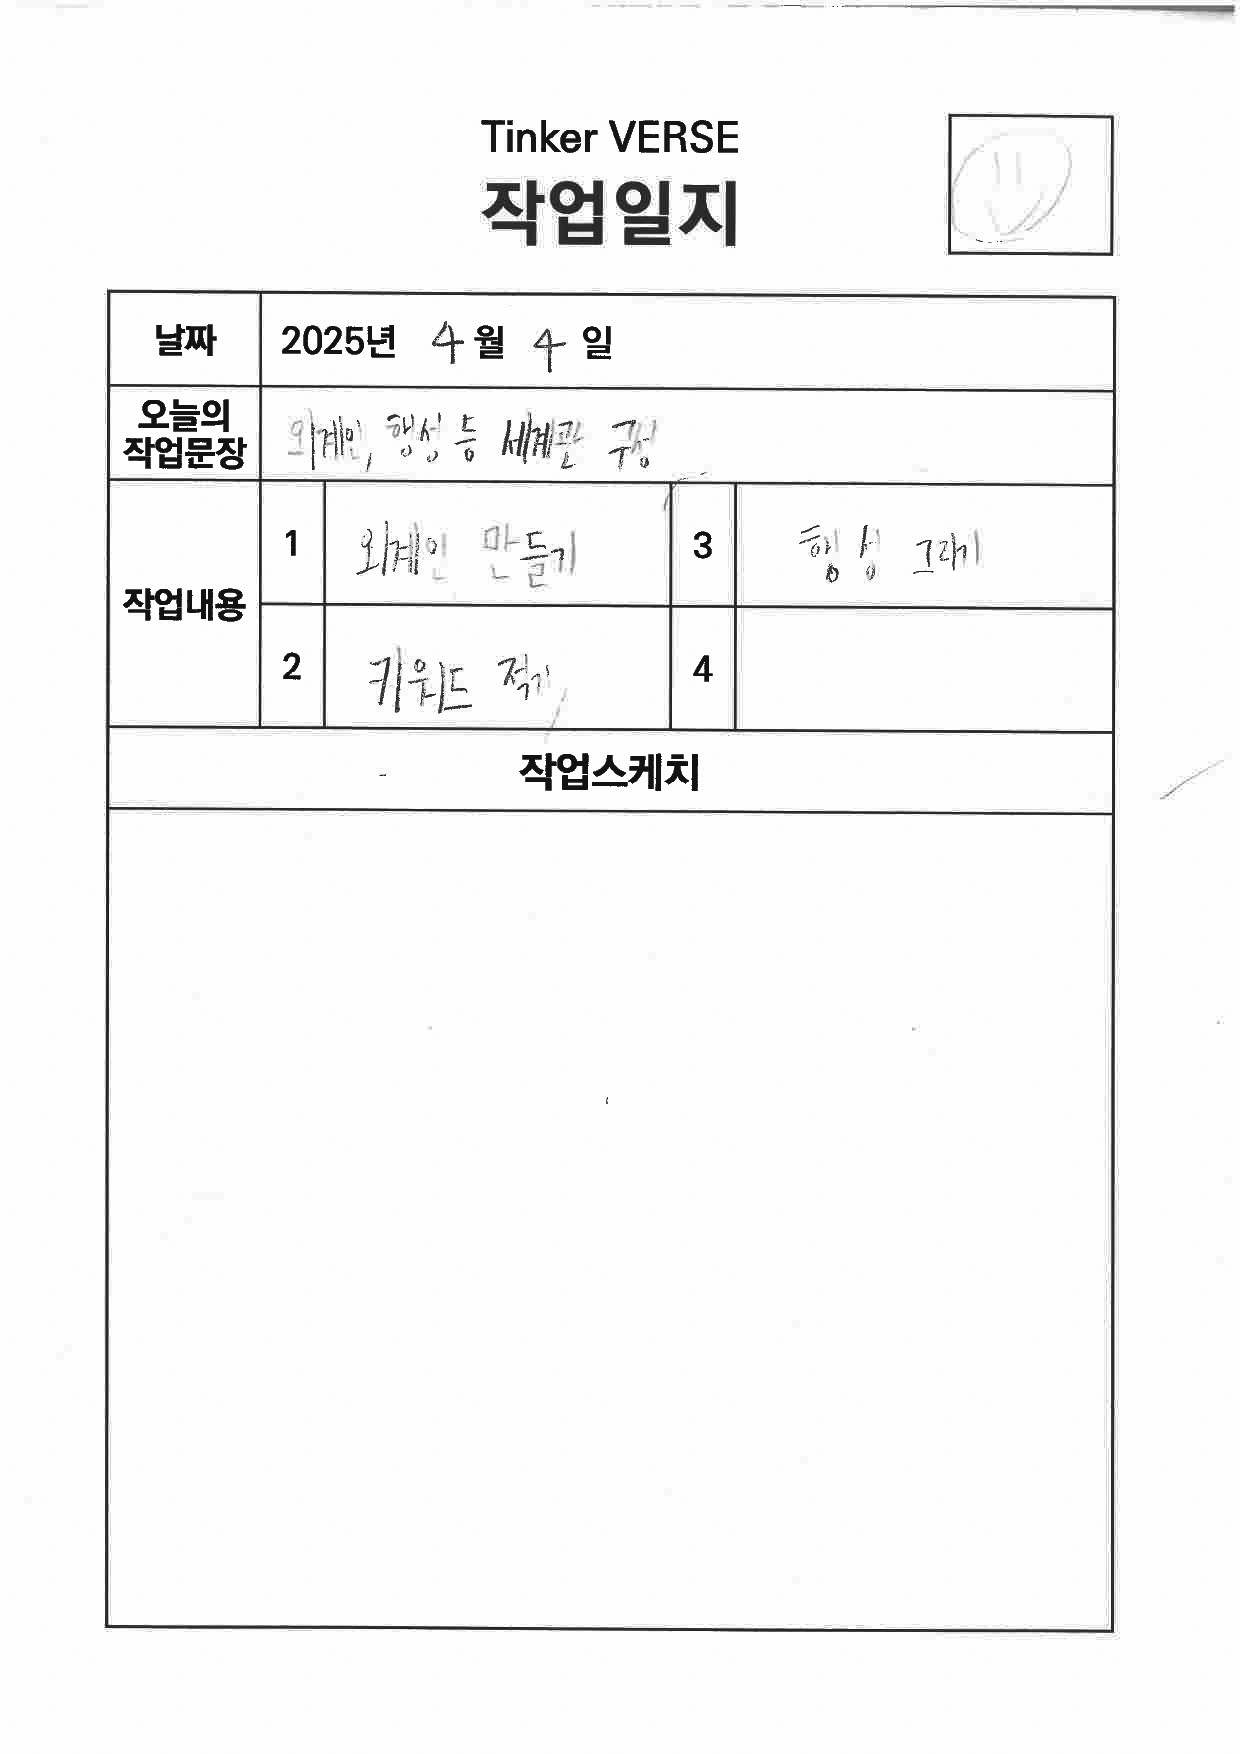 Tinker VERSE
작업일지
날짜
2025년 4월 4일
오늘의
작업문장
외계인, 행성 등 세계관 구성
작업내용
1 외계인 만들기
3 행성 그리기
2 키워드 적기
4
작업스케치